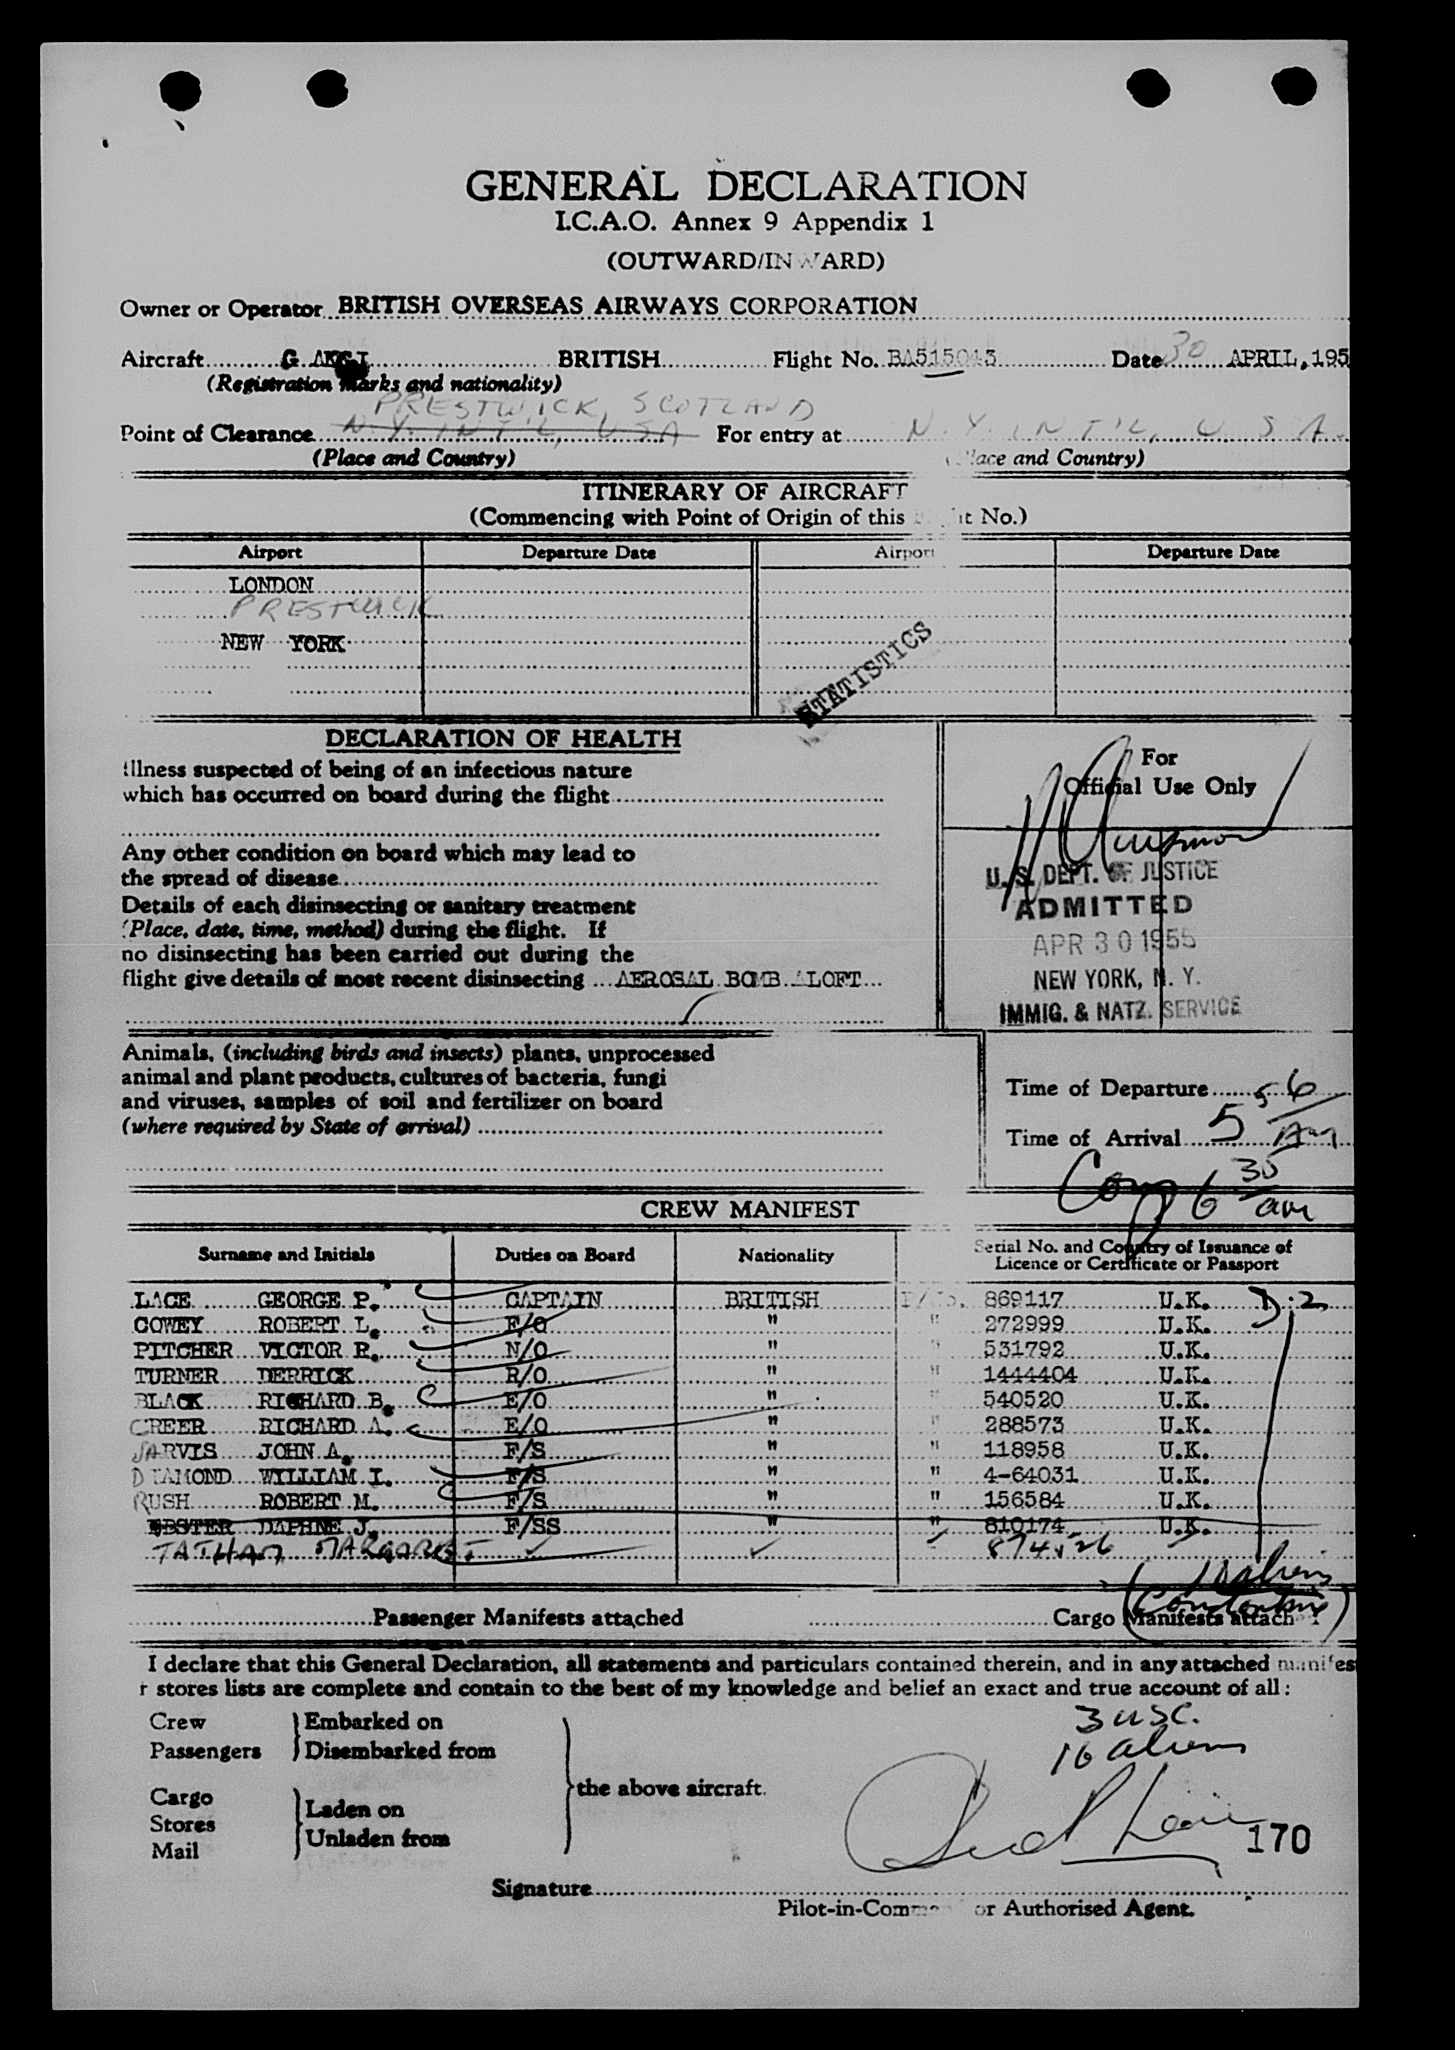 GENERAL DECLARATION
I.C.A.O. Annex 9 Appendix 1
(OUTWARD/INWARD)
Owner or Operator BRITISH OVERSEAS AIRWAYS CORPORATION
Aircraft G BRITISH Flight No. BA515043 Date 30 APRIL, 195
(Registration Marks and nationality)
PRESTWICK, SCOTLAND
Point of Clearance N.Y. INT'L, USA For entry at N.Y. INT'L, U S A.
(Place and Country) Place and Country)
ITINERARY OF AIRCRAFT
(Commencing with Point of Origin of this Flight No.)
Airport Departure Date Airport Departure Date
LONDON
PRESTWICK
NEW YORK
STATISTICS
DECLARATION OF HEALTH
Illness suspected of being of an infectious nature
which has occurred on board during the flight
Any other condition on board which may lead to
the spread of disease
Details of each disinsecting or sanitary treatment
(Place, date, time, method) during the flight. If
no disinsecting has been carried out during the
flight give details of most recent disinsecting AEROSAL BOMB ALOFT
For
Official Use Only
U.S. DEPT. OF JUSTICE
ADMITTED
APR 30 1955
NEW YORK, N.Y.
IMMIG. & NATZ. SERVICE
Animals, (including birds and insects) plants, unprocessed
animal and plant products, cultures of bacteria, fungi
and viruses, samples of soil and fertilizer on board
(where required by State of arrival)
Time of Departure
Time of Arrival 5 56 AM
6 30 am
CREW MANIFEST
Surname and Initials Duties on Board Nationality Serial No. and Country of Issuance of
Licence or Certificate or Passport
LACE GEORGE P. CAPTAIN BRITISH 869117 U.K. D:2
COWEY ROBERT L. F/O " " 272999 U.K.
PITCHER VICTOR R. N/O " " 531792 U.K.
TURNER DERRICK R/O " " 1444404 U.K.
BLACK RICHARD B. E/O " " 540520 U.K.
CREER RICHARD A. E/O " " 288573 U.K.
JARVIS JOHN A. F/S " " 118958 U.K.
DIAMOND WILLIAM I. F/S " " 4-64031 U.K.
RUSH ROBERT M. F/S " " 156584 U.K.
DAPHNE J. F/SS " " 810174 U.K.
TATHAM MARGARET ✓ ✓ ✓
Passenger Manifests attached Cargo Manifests attached
I declare that this General Declaration, all statements and particulars contained therein, and in any attached manifes
r stores lists are complete and contain to the best of my knowledge and belief an exact and true account of all:
Crew Embarked on
Passengers Disembarked from
Cargo
Stores
Mail
Laden on
Unladen from
the above aircraft.
3 USC.
16 aliens
170
Signature
Pilot-in-Command or Authorised Agent.